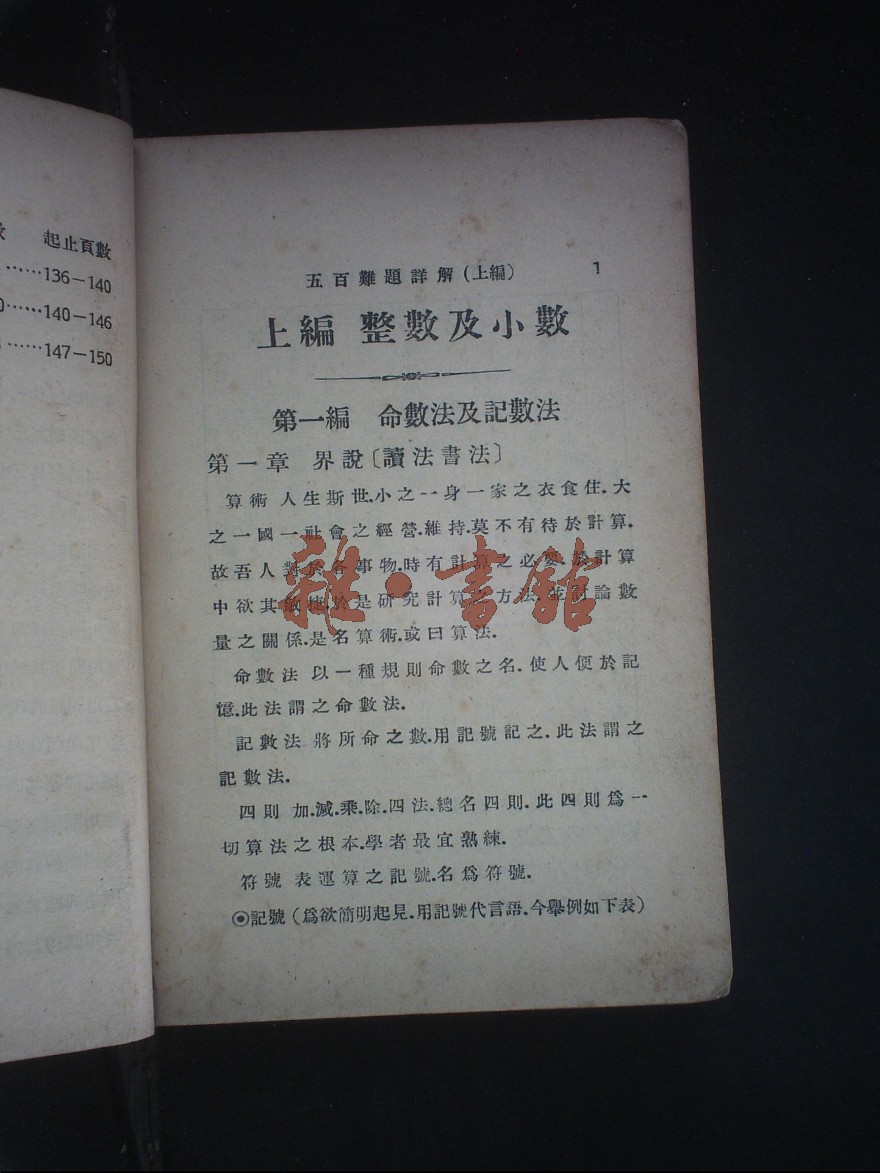 起止頁數
……136－140
……140－146
……147－150
五百難題詳解(上編) 1
上編 整數及小數
第一編 命數法及記數法
第一章 界說〔讀法書法〕
算術 人生斯世.小之一身一家之衣食住.大
之一國一社會之經營.維持.莫不有待於計算.
故吾人對於各事物.時有計算之必要.於計算
中欲其敏捷.於是研究計算之方法.並討論數
量之關係.是名算術.或曰算法.
命數法 以一種規則命數之名.使人便於記
憶.此法謂之命數法.
記數法 將所命之數.用記號記之.此法謂之
記數法.
四則 加.減.乘.除.四法.總名四則.此四則爲一
切算法之根本.學者最宜熟練.
符號 表運算之記號.名爲符號.
⊙記號(爲欲簡明起見.用記號代言語.今舉例如下表)
雜·書館